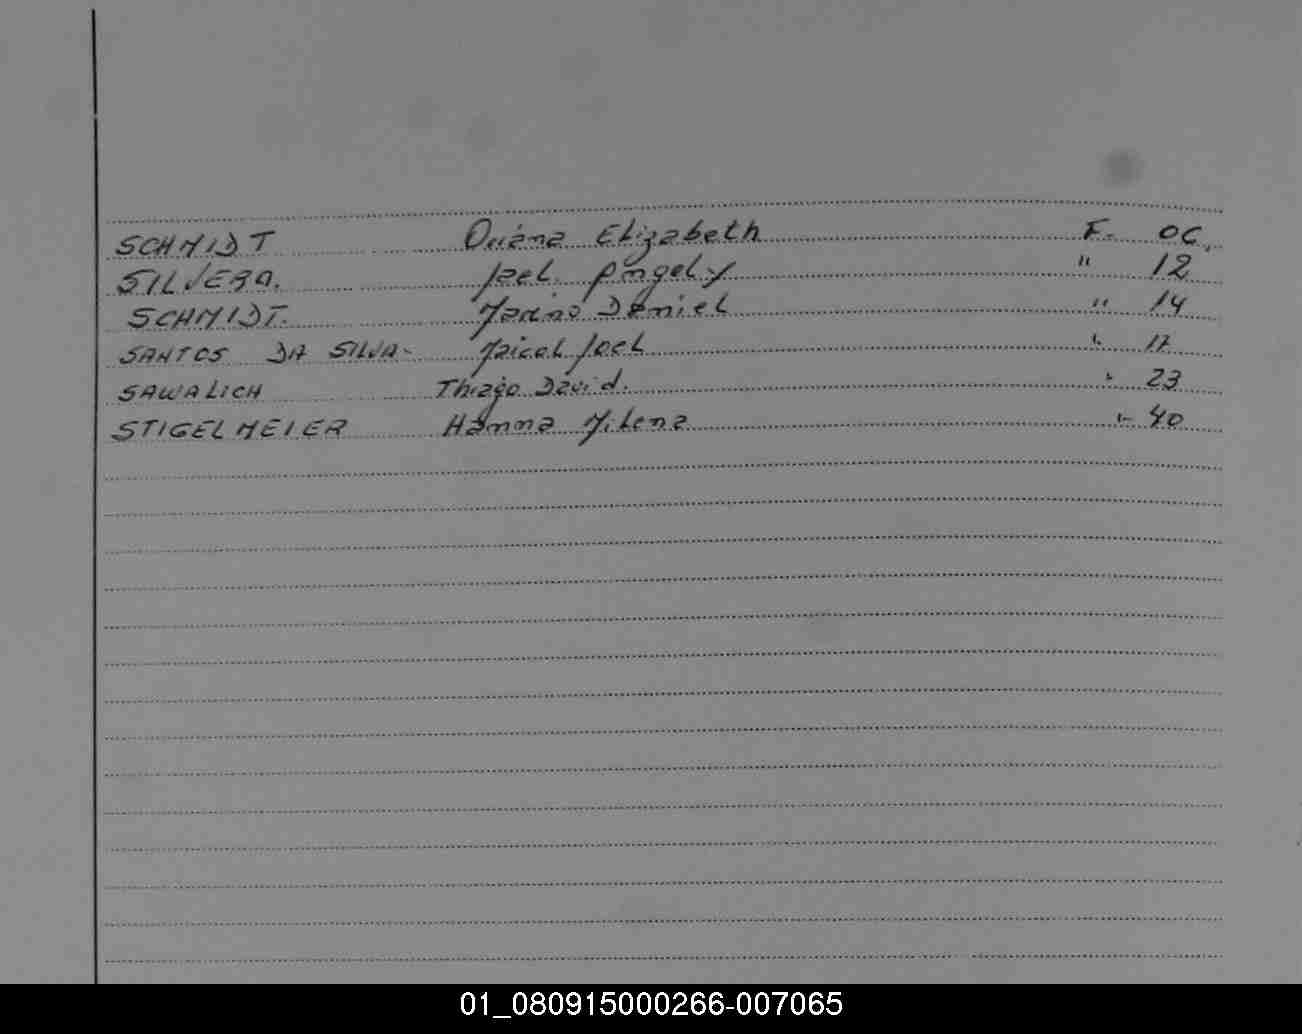 SCHMIDT Oriana Elizabeth F. 06
SILVERA. Joel " 12
SCHMIDT. Daniel " 14
SANTOS DA SILVA Joel " 17
SAWALICH Thiago David. " 23
STIGELMEIER Hanna Milena " 40
01_080915000266-007065